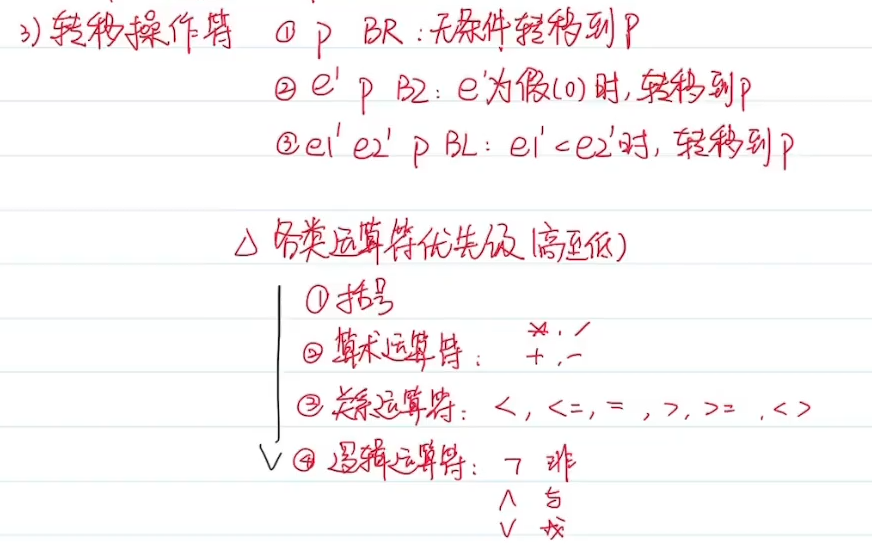 3) 转移操作符 ① p BR：无条件转移到P
② e' p BZ：e'为假(0)时，转移到p
③ e1' e2' p BL：e1'<e2'时，转移到p
△ 各类运算符优先级(高至低)
① 括号
② 算术运算符：*，/
+，-
③ 关系运算符：<，<=，=，>，>=，<>
④ 逻辑运算符：¬ 非
∧ 与
∨ 或